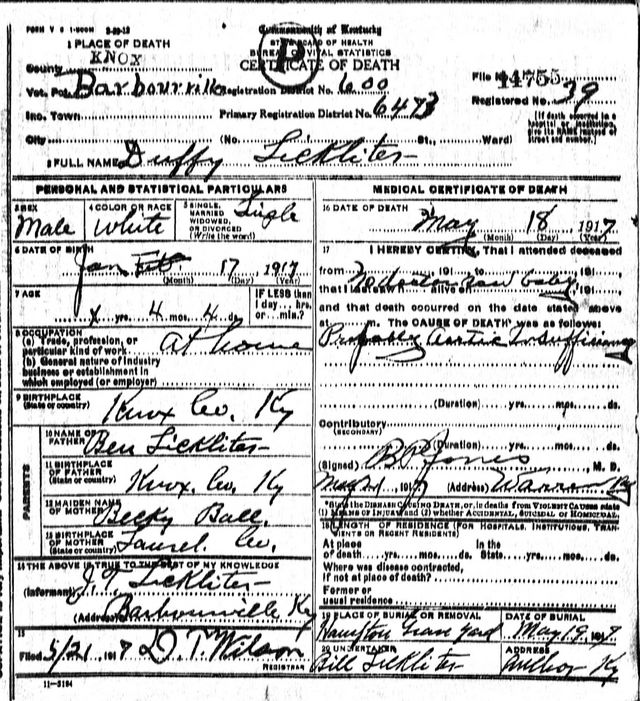 FORM V S 1-500M 3-29-13
Commonwealth of Kentucky
1 PLACE OF DEATH
STATE BOARD OF HEALTH
KNOX
BUREAU OF VITAL STATISTICS
County
CERTIFICATE OF DEATH
Vot. Pct. Barbourville Registration District No. 600
File No. 14755
Inc. Town
Primary Registration District No. 6473
Registered No. 39
City (No. St., Ward)
[If death occurred in a hospital or institution, give its NAME instead of street and number.]
2 FULL NAME Duffy Lickliter
PERSONAL AND STATISTICAL PARTICULARS
3 SEX Male
4 COLOR OR RACE White
5 SINGLE, MARRIED WIDOWED, OR DIVORCED (Write the word) Single
6 DATE OF BIRTH
Jan Feb 17 1917
(Month) (Day) (Year)
7 AGE
x yrs. 4 mos. 4 ds.
IF LESS than 1 day... hrs. or... min.?
8 OCCUPATION
(a) Trade, profession, or particular kind of work at home
(b) General nature of industry business or establishment in which employed (or employer)
9 BIRTHPLACE
(State or country) Knox Co. Ky
PARENTS
10 NAME OF FATHER Ben Lickliter
11 BIRTHPLACE OF FATHER (State or country) Knox. Co. Ky
12 MAIDEN NAME OF MOTHER Becky Ball
13 BIRTHPLACE OF MOTHER (State or country) Laurel Co.
14 THE ABOVE IS TRUE TO THE BEST OF MY KNOWLEDGE
(Informant) J. T. Lickliter
(Address) Barbourville Ky
15
Filed 5/21 1917 D. T. Wilson
REGISTRAR
11-3184
MEDICAL CERTIFICATE OF DEATH
16 DATE OF DEATH
May 18 1917
(Month) (Day) (Year)
17 I HEREBY CERTIFY, That I attended deceased
from No doctor saw baby 191
that I last saw alive on 191
and that death occurred on the date stated above
at m. The CAUSE OF DEATH was as follows:
Probably Aortic Insufficiency
(Duration) yrs. mos. ds.
Contributory
(SECONDARY)
(Duration) yrs. mos. ds.
(Signed) Jones M. D.
May 21 1917 (Address) Warren Ky
*State the DISEASE CAUSING DEATH, or, in deaths from VIOLENT CAUSES state (1) MEANS OF INJURY and (2) whether ACCIDENTAL, SUICIDAL OR HOMICIDAL.
18 LENGTH OF RESIDENCE (FOR HOSPITALS, INSTITUTIONS, TRANSIENTS OR RECENT RESIDENTS)
At place of death yrs. mos. ds. In the State yrs. mos. ds.
Where was disease contracted, if not at place of death?
Former or usual residence
19 PLACE OF BURIAL OR REMOVAL Hampton Grave Yard
DATE OF BURIAL May 19 1917
20 UNDERTAKER Bill Lickliter
ADDRESS Ky